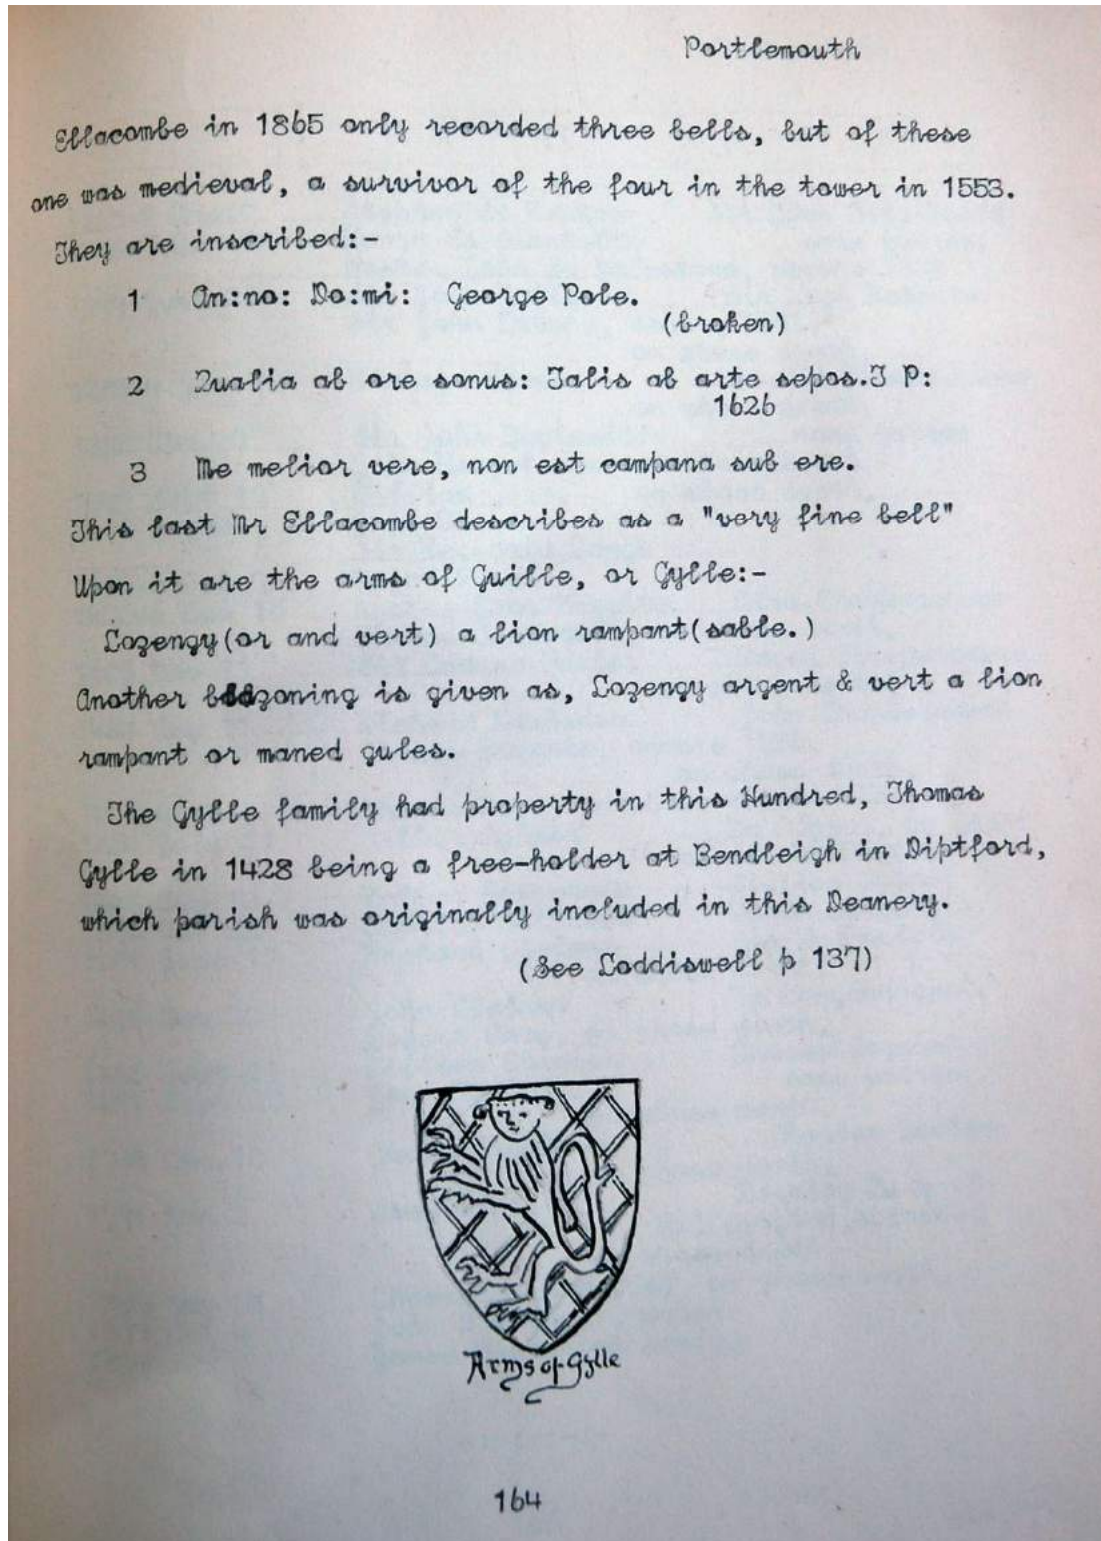 Portlemouth
Ellacombe in 1865 only recorded three bells, but of these
one was medieval, a survivor of the four in the tower in 1553.
They are inscribed:-
1 An:no: Do:mi: George Pole.
(broken)
2 Qualia ab ore sonus: Talis ab arte sepos.I P:
1626
3 Me melior vere, non est campana sub ere.
This last Mr Ellacombe describes as a "very fine bell"
Upon it are the arms of Guille, or Gylle:-
Lozengy(or and vert) a lion rampant(sable.)
Another zoning is given as, Lozengy argent & vert a lion
rampant or maned gules.
The Gylle family had property in this Hundred, Thomas
Gylle in 1428 being a free-holder at Bendleigh in Diptford,
which parish was originally included in this Deanery.
(See Loddiswell p 137)
Arms of Gylle
164